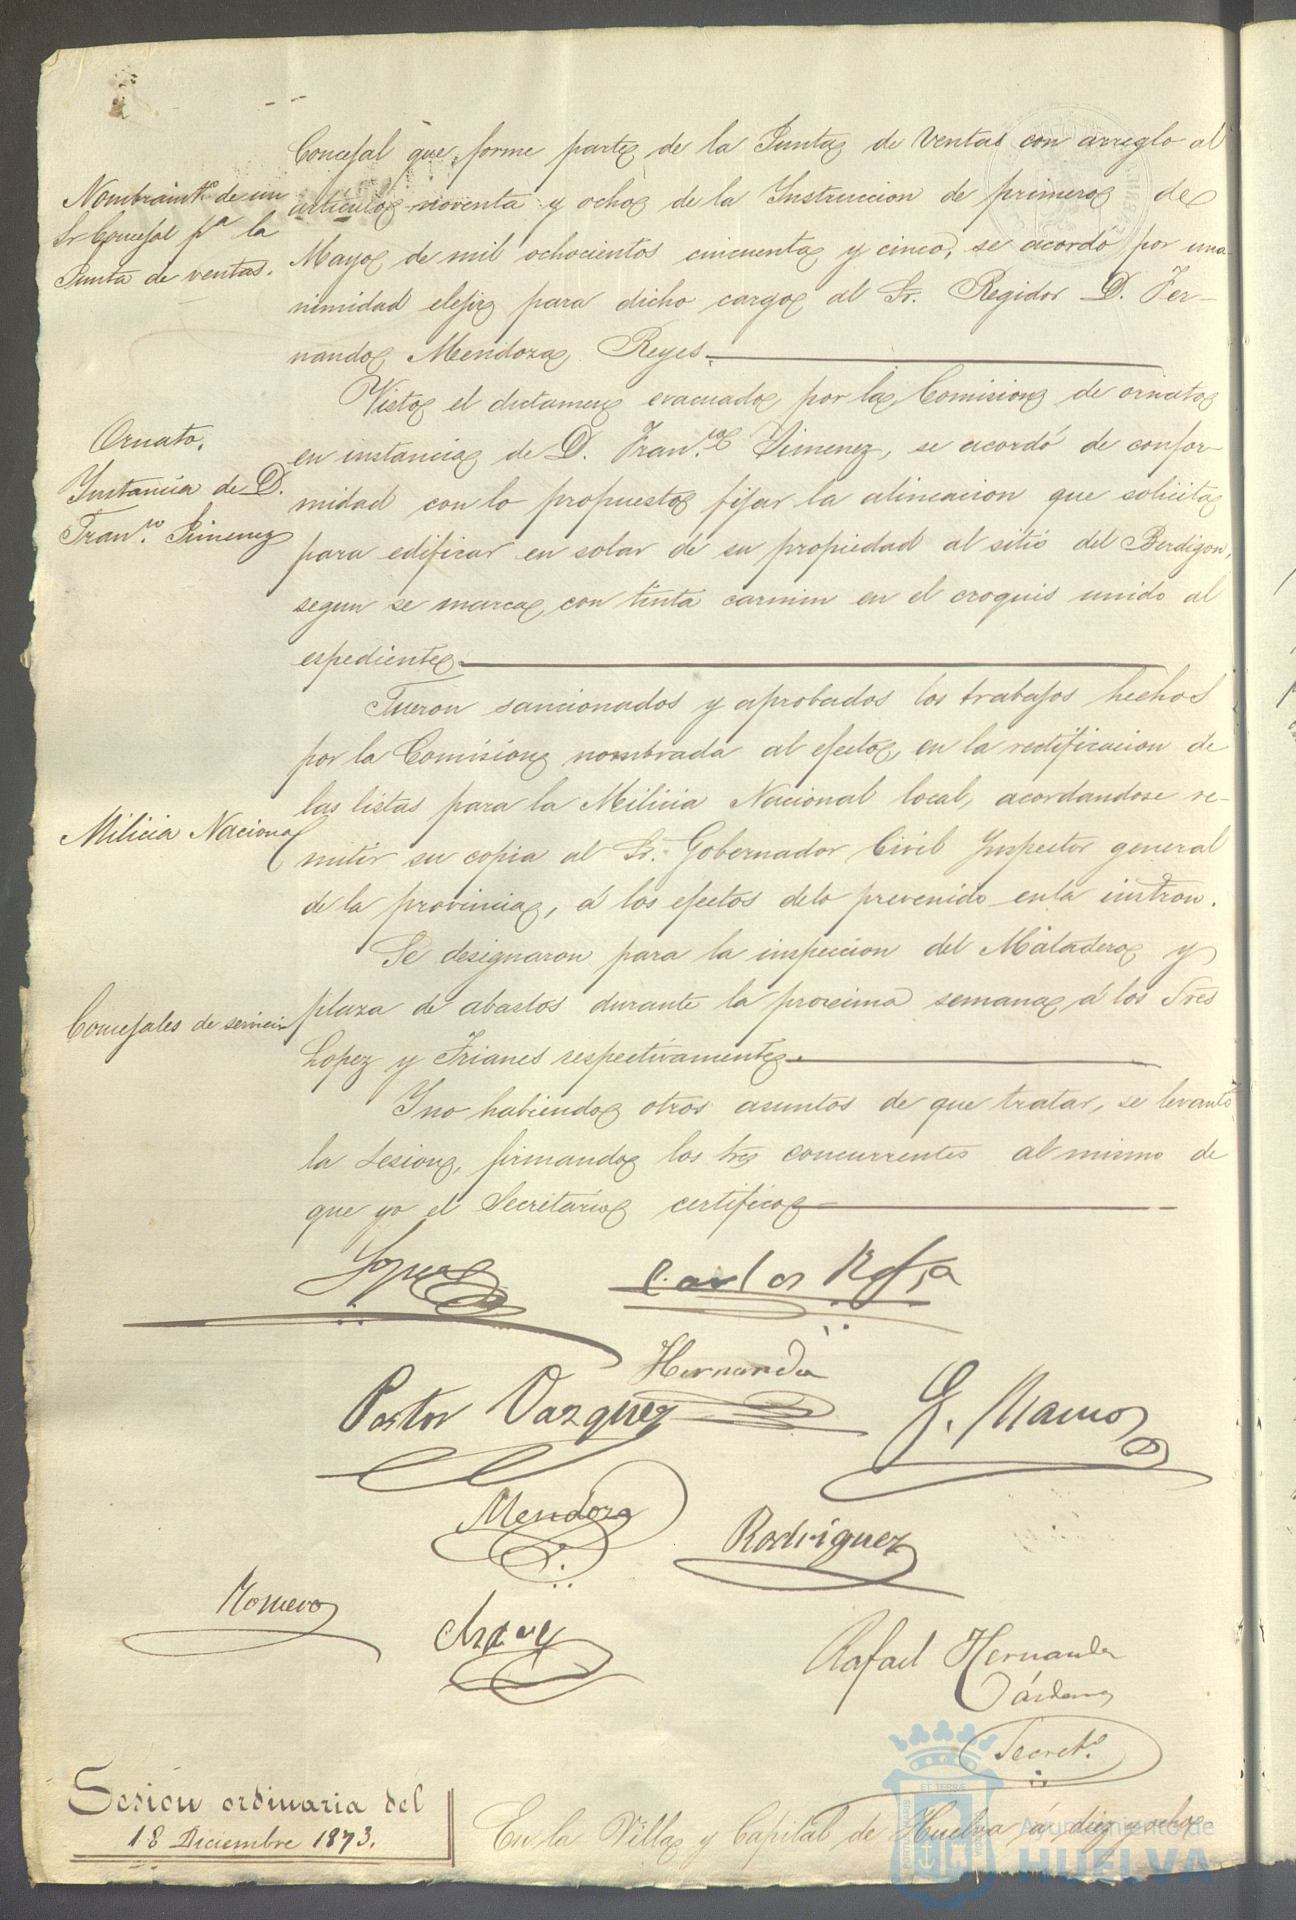 Concejal que forme parte de la Junta de ventas con arreglo al
Nombraimto. de un
Sr Concejal pa la
Junta de ventas.
articulo noventa y ocho de la Instruccion de primero de
Mayo de mil ochocientos cincuenta y cinco, se acordó por una-
nimidad elejir para dicho cargo al Sr. Regidor D. Fer-
nando Mendoza Reyes.
Visto el dictamen evacuado por la Comision de ornato
Ornato.
Instancia de D.
Franco. Jimenez
en instancia de D. Franco. Jimenez, se acordó de confor-
midad con lo propuesto fijar la alineacion que solicita
para edificar en solar de su propiedad al sitio del Berdigon,
segun se marca con tinta carmin en el croquis unido al
espediente.
Fueron sancionados y aprobados los trabajos hechos
por la Comision nombrada al efecto, en la rectificacion de
las listas para la Milicia Nacional local, acordandose re-
Milicia Nacional
mitir su copia al Sr. Gobernador Civil Ynspector general
de la provincia, á los efectos delo prevenido enla instron.
Se designaron para la inspeccion del Matadero y
Concejales de servicio
plaza de abastos durante la procsima semana á los Sres
Lopez y Trianes respectivamente.
Y no habiendo otros asuntos de que tratar, se levantó
la sesion, firmando los Sres concurrentes al mismo de
que yo el Secretario certifico
Lopez
Carlos Rofa
Hernandez
Pastor Vazquez
G. Ramos
Mendoza
Rodriguez
Romero
Rafael Hernandez
Cárdenas
Secreto.
Sesión ordinaria del
18 Diciembre 1873.
En la Villa y Capital de Huelva á diez y ocho
Ayuntamiento de
HUELVA